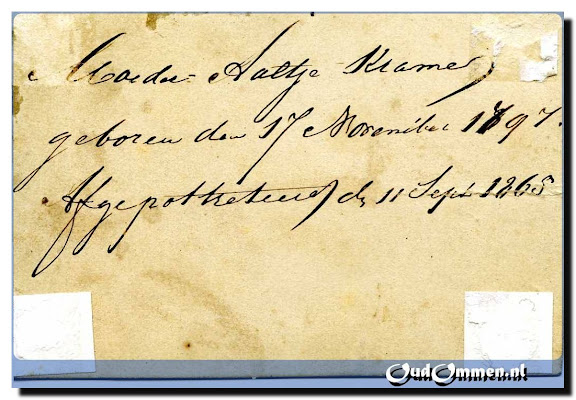 Moeder Aaltje Kramer
geboren den 17 November 1797.
Afgepottreteerd de 11 Sept 1868
OudOmmen.nl